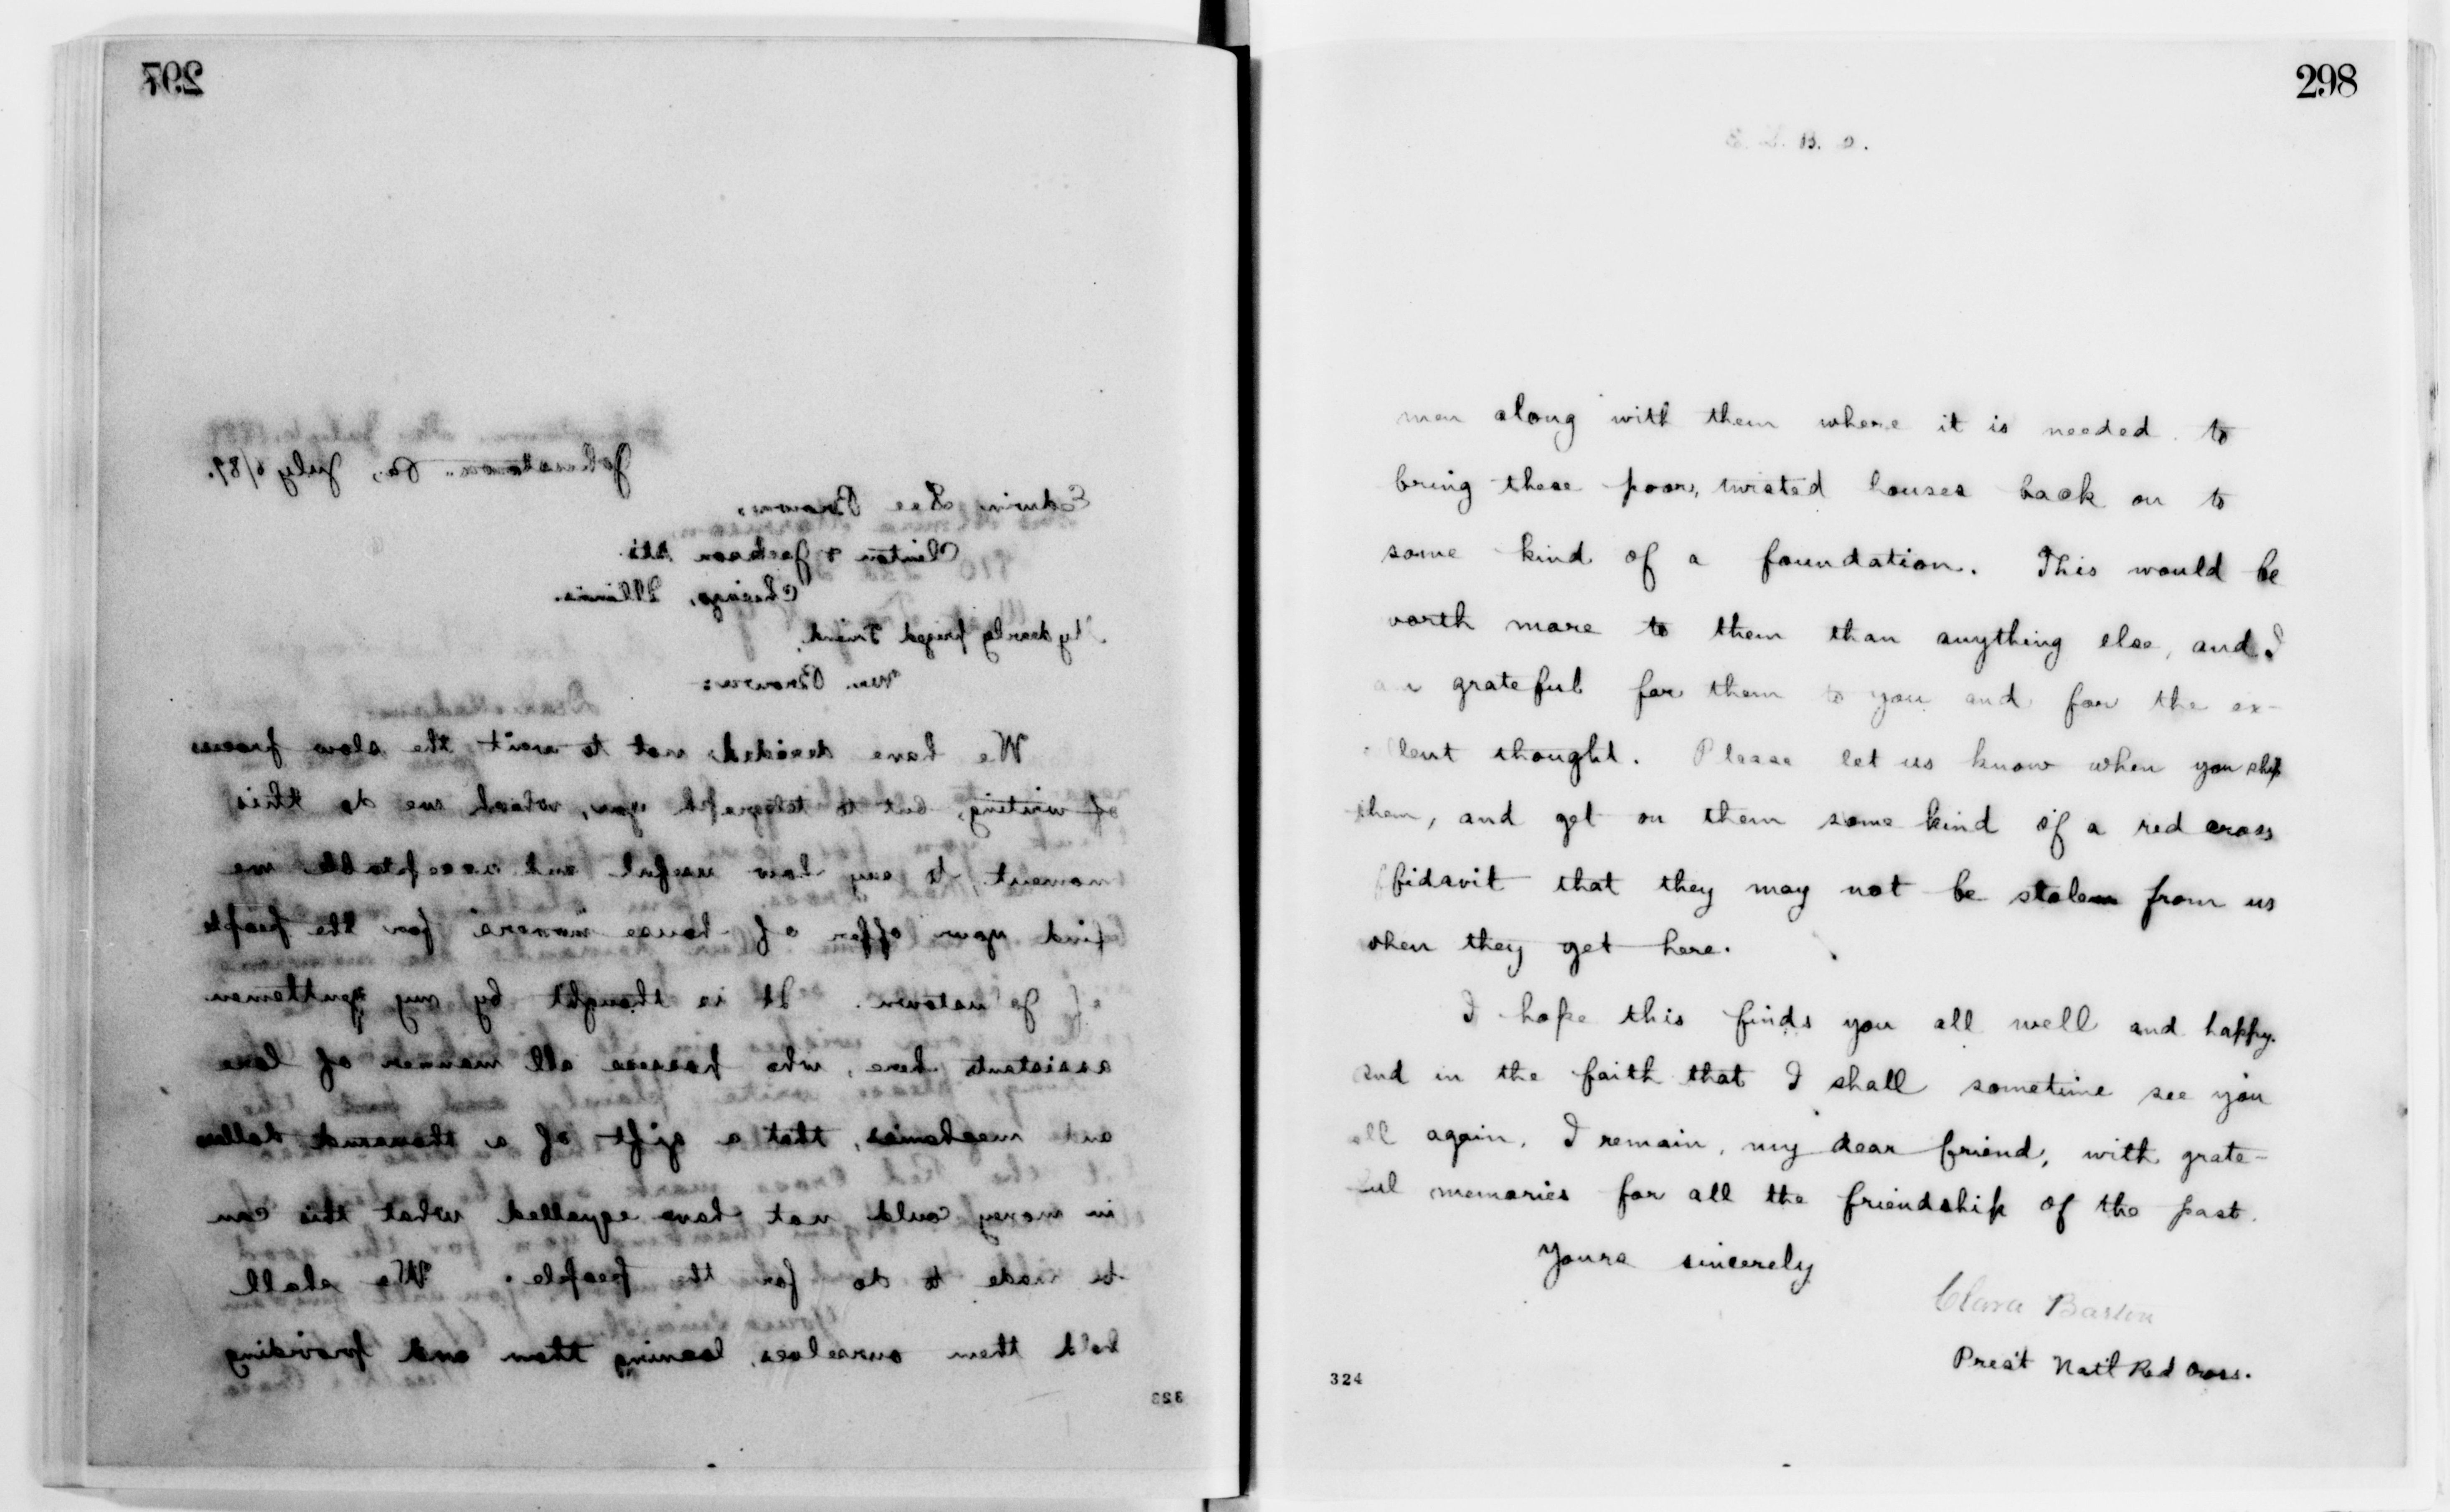 297
Johnstown, Pa., July 6/89.
Edwin Lee Brown,
Clinton & Jackson Sts.
Chicago, Illinois.
My dearly prized Friend,
Mr. Brown:
We have decided not to wait the slow process
of writing, but to telegraph you, which we do this
moment, to say how useful and acceptable we
find your offer of house movers for the people
of Jo nstown. It is thought by my gentlemen
assistants here, who possess all manner of lore
and mechanics, that a gift of a thousand dollars
in money could not have equalled what this can
be made to do for the people. We shall
hold them ourselves, loaning them and providing
323
298
E. L. B. 2.
men along with them where it is needed to
bring these poor, twisted houses back on to
some kind of a foundation. This would be
worth more to them than anything else, and I
am grateful for them to you and for the ex-
llent thought. Please let us know when you ship
them, and get on them some kind of a red cross
ffidavit that they may not be stolen from us
when they get here.
I hope this finds you all well and happy.
and in the faith that I shall sometime see you
all again, I remain, my dear friend, with grate-
ful memories for all the friendship of the past.
Yours sincerely
Clara Barton
Pres't Nat'l Red Cross.
324